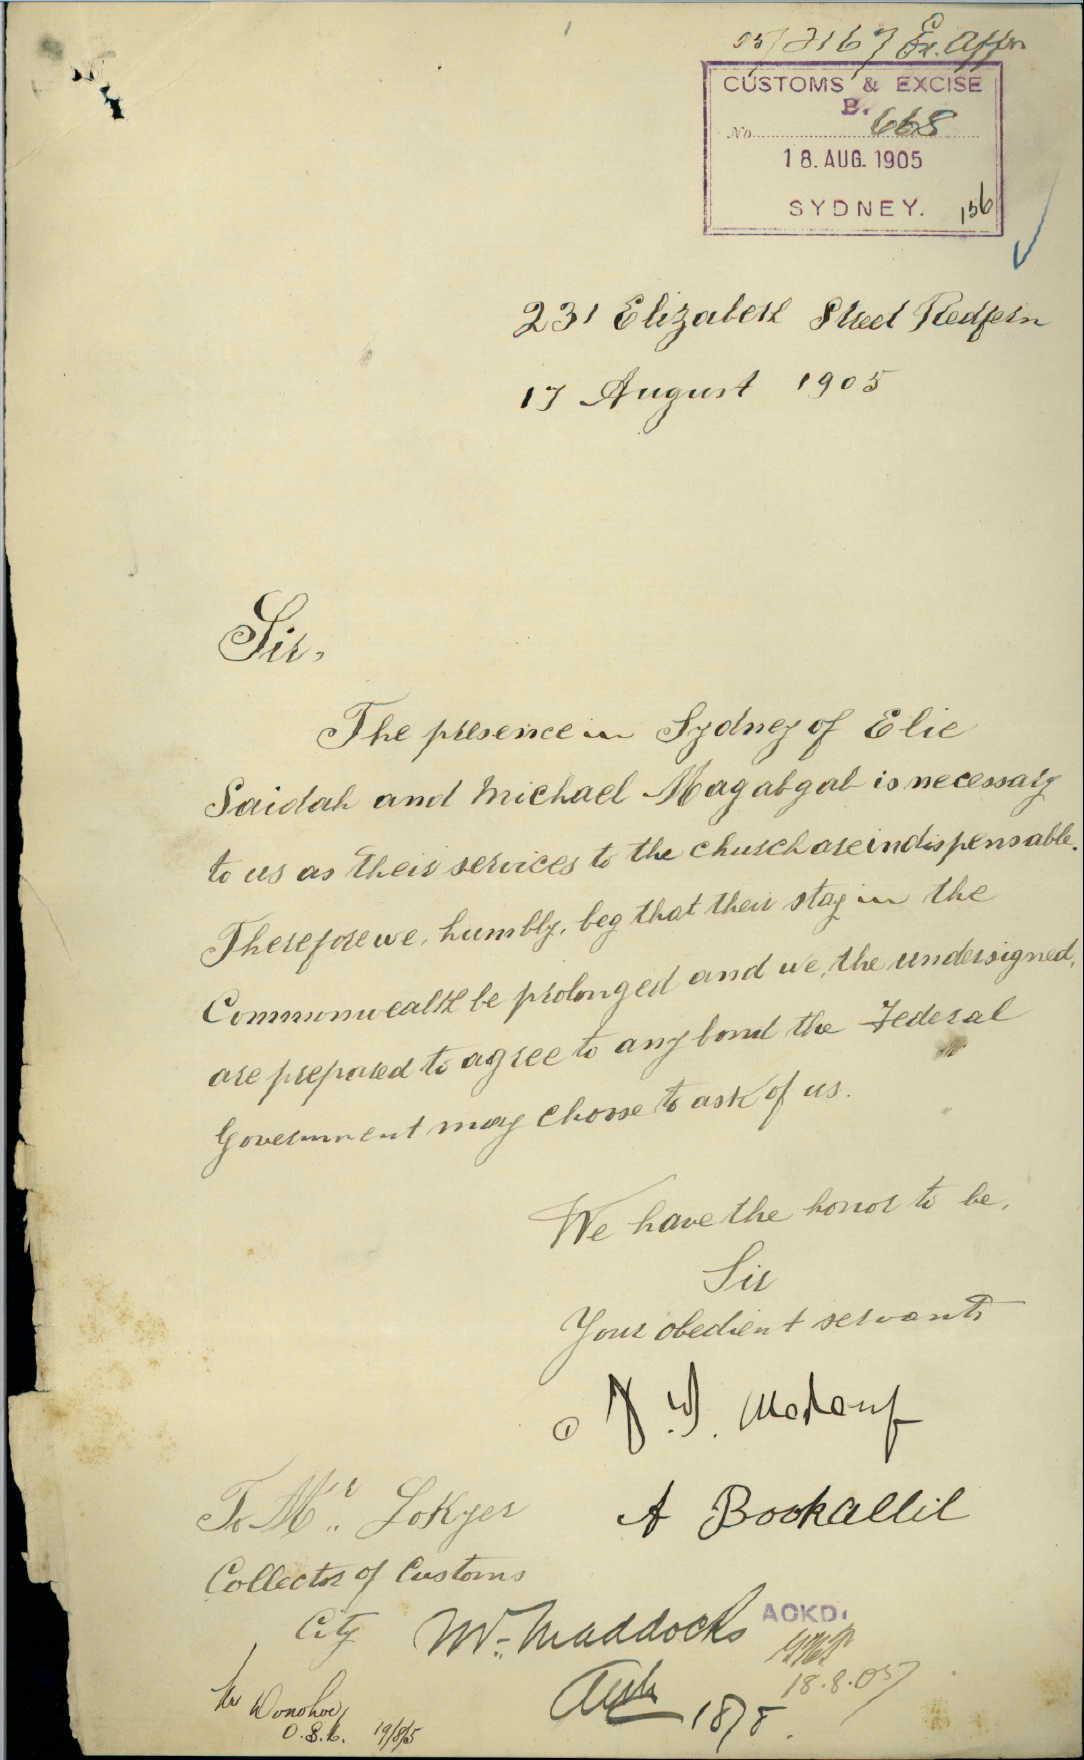 05/2167 Ex. Affrs
CUSTOMS & EXCISE
B.
No 668
18. AUG. 1905
SYDNEY. 156
231 Elizabeth Street Redfern
17 August 1905
Sir,
The presence in Sydney of Elie
Saidah and Michael Magabgab is necessary
to us as their services to the church are indispensable.
Therefore we, humbly, beg that their stay in the
Commonwealth be prolonged and we, the undersigned,
are prepared to agree to any bond the Federal
Government may choose to ask of us.
We have the honor to be,
Sir
Your obedient servants
A Bookallil
To Mr. Lokyer
Collector of Customs
City
Mr. Maddocks
ACKD.
18.8.05
18/8.
Mr Donohoe
19/8/5